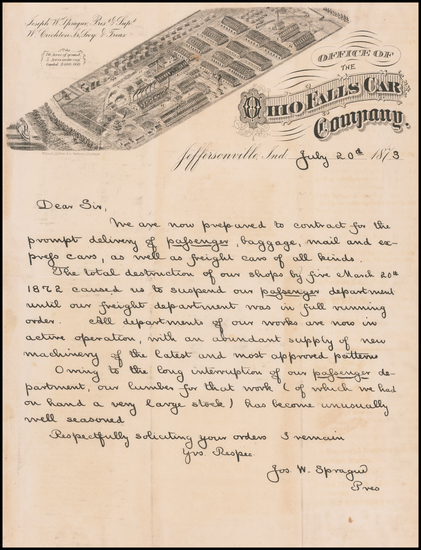 Joseph W. Sprague, Pres. & Supt.
W. Crockton Jr, Secy. & Treas.
OFFICE OF
THE
OHIO FALLS CAR
Company.
Jeffersonville, Ind. July 20th 1873
Dear Sir,
We are now prepared to contract for the
prompt delivery of passenger, baggage, mail and ex-
press cars, as well as freight cars of all kinds.
The total destruction of our shops by fire March 20th
1872 caused us to suspend our passenger department
until our freight department was in full running
order. All departments of our works are now in
active operation, with an abundant supply of new
machinery of the latest and most approved patterns
Owing to the long interruption of our passenger de-
partment, our lumber for that work (of which we had
on hand a very large stock) has become unusually
well seasoned
Respectfully soliciting your orders I remain
Yrs. Respec.
Jos W. Sprague
Pres